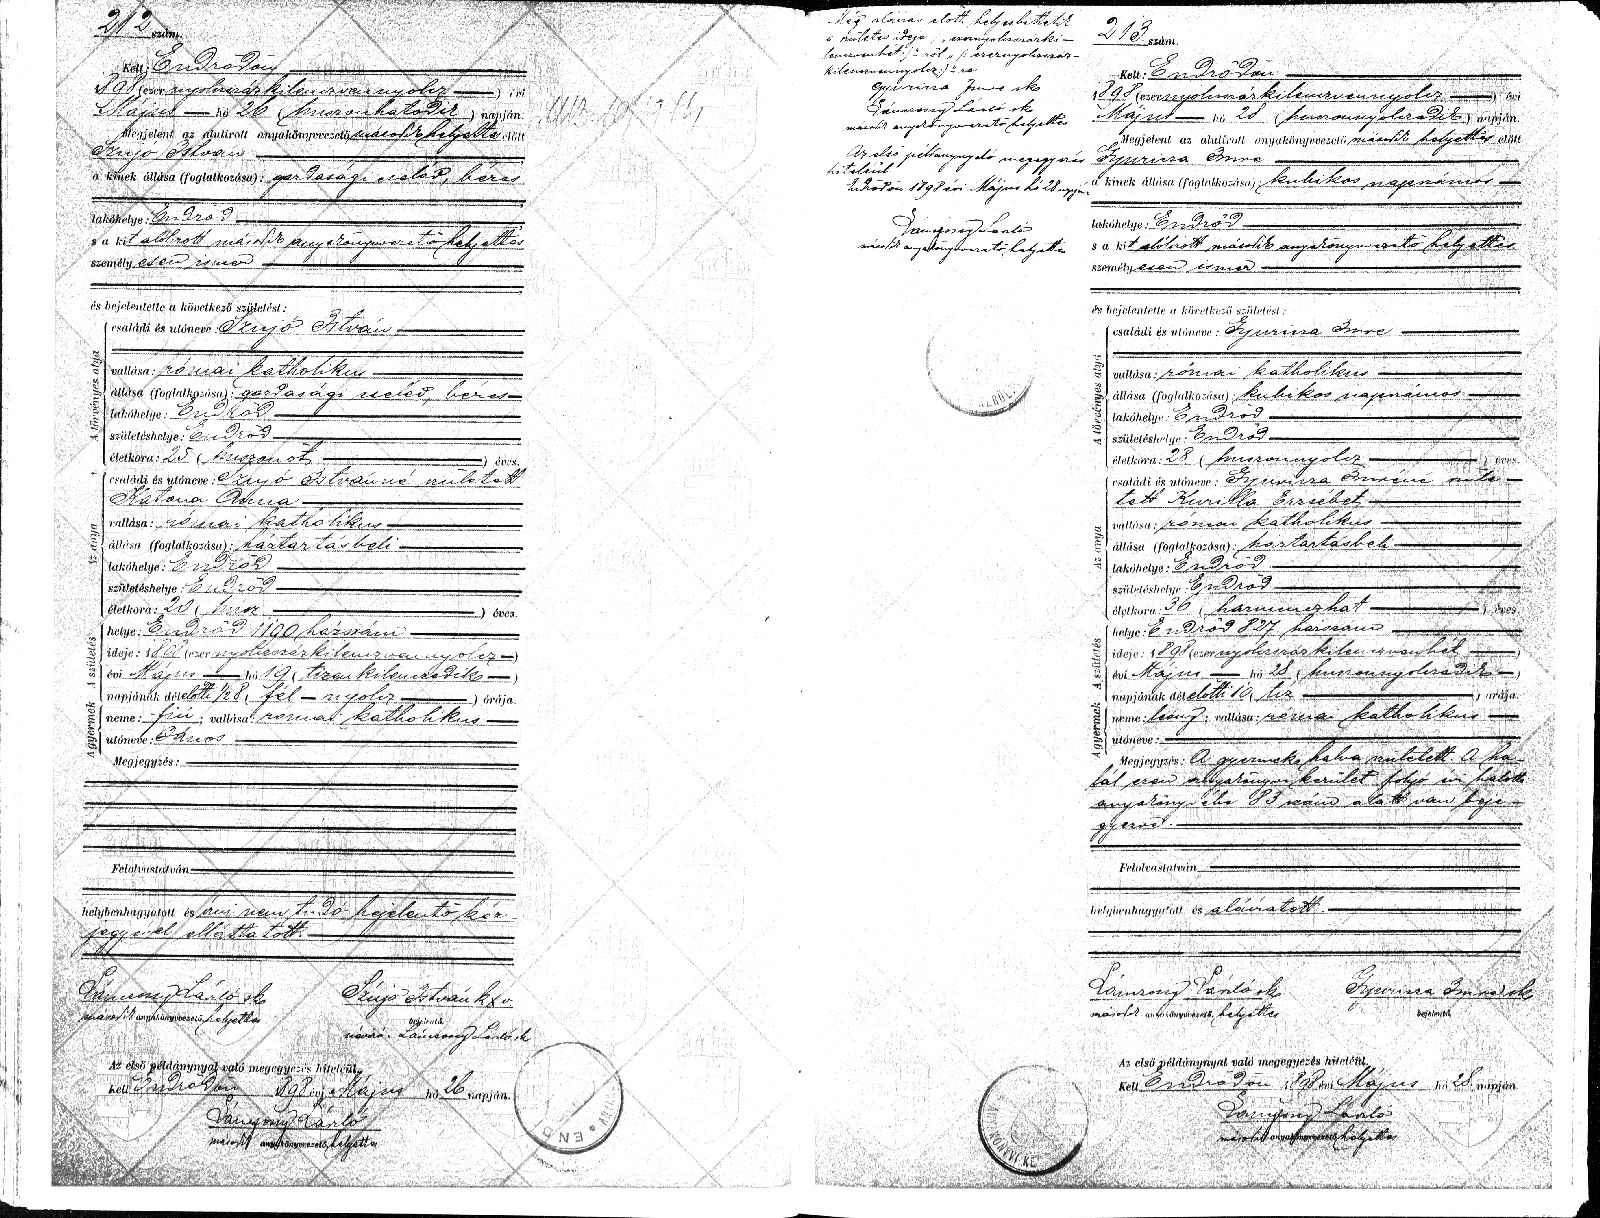 212 szám.
Kelt: Endrődön
1898 (ezer nyolczszázkilenczvennyolcz) évi
Május hó 26 (huszonhatodik) napján.
Megjelent az alulirott anyakönyvezető második helyettes előtt
Szujó István
a kinek állása (foglalkozása): gazdasági cseléd, béres
lakóhelye: Endrőd
s a kit alólirott második anyakönyvvezető helyettes
személyesen ismer
és bejelentette a következő születést:
A törvényes atya
családi és utóneve: Szujó István
vallása: római katholikus
állása (foglalkozása): gazdasági cseléd, béres
lakóhelye: Endrőd
születéshelye: Endrőd
életkora: 25 (huszonöt) éves.
Az anya
családi és utóneve: Szujó Istvánné született
Katona Anna
vallása: római katholikus
állása (foglalkozása): háztartásbeli
lakóhelye: Endrőd
születéshelye: Endrőd
életkora: 20 (husz) éves.
A születés
helye: Endrőd 1190 házszám
ideje: 1898 (ezer nyolczszázkilenczvennyolcz)
évi Május hó 19 (tizenkilenczedik)
napjának délelőtti 1/2 8 (fél nyolcz) órája.
A gyermek
neme: fiú; vallása: római katholikus
utóneve: János
Megjegyzés:
Felolvastatván
helybenhagyatott és irni nem tudó bejelentő kéz
jegyével elláttatott.
Lánczony László sk
második anyakönyvvezető helyettes
Szujó István k x v.
bejelentő.
névíró: Lánczony László sk
Az első példánynyal való megegyezés hiteléül.
Kelt Endrődön 1898 évi Május hó 26 napján.
Lánczony László
második anyakönyvvezető helyettes
END
Még aláirás előtt helyesbittetik
a születés ideje „ezernyolczszázki-
lenczvenhét”-ről „ezernyolczszáz-
kilenczvennyolcz”-ra
Gyuricza Imre sk
Lánczony László sk
második anyakönyvvezető helyettes
Az első példánynyaló megegyezés
hiteléül
Endrődön 1898 évi Május hó 28 napján
Lánczony László
második anyakönyvvezető helyettes
213 szám.
Kelt: Endrődön
1898 (ezer nyolczszázkilenczvennyolcz) évi
Május hó 28 (huszonnyolczadik) napján.
Megjelent az alulirott anyakönyvezető második helyettes előtt
Gyuricza Imre
a kinek állása (foglalkozása) kubikos napszámos
lakóhelye: Endrőd
s a kit alólirott második anyakönyvvezető helyettes
személyesen ismer
és bejelentette a következő születést:
A törvényes atya
családi és utóneve: Gyuricza Imre
vallása: római katholikus
állása (foglalkozása): kubikos napszámos
lakóhelye: Endrőd
születéshelye: Endrőd
életkora: 28 (huszonnyolcz) éves.
Az anya
családi és utóneve: Gyuricza Imréné szüle-
tett Kurilla Erzsébet
vallása: római katholikus
állása (foglalkozása): háztartásbeli
lakóhelye: Endrőd
születéshelye: Endrőd
életkora: 36 (harminczhat) éves.
A születés
helye: Endrőd 827 házszám
ideje: 1898 (ezer nyolczszázkilenczvenhét)
évi Május hó 28 (huszonnyolczadik)
napjának délelőtti 10 (tiz) órája.
A gyermek
neme: leány; vallása: római katholikus
utóneve:
Megjegyzés: A gyermek halva született. A ha-
lál ezen anyakönyvi kerület folyó évi halotti
anyakönyvébe 83 szám alatt van beje-
gyezve.
Felolvastatván
helybenhagyatott és aláiratott.
Lánczony László sk
második anyakönyvvezető helyettes
Gyuricza Imre sk
bejelentő.
Az első példánynyal való megegyezés hiteléül.
Kelt Endrődön 1898 évi Május hó 28 napján
Lánczony László
második anyakönyvvezető helyettes